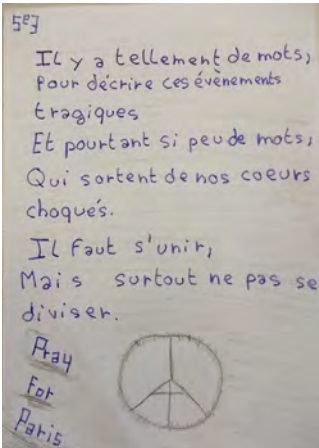 5e3
Il y a tellement de mots,
Pour décrire ces évènements
tragiques
Et pourtant si peu de mots,
Qui sortent de nos coeurs
choqués.
Il faut s'unir,
Mais surtout ne pas se
diviser.
Pray
For
Paris